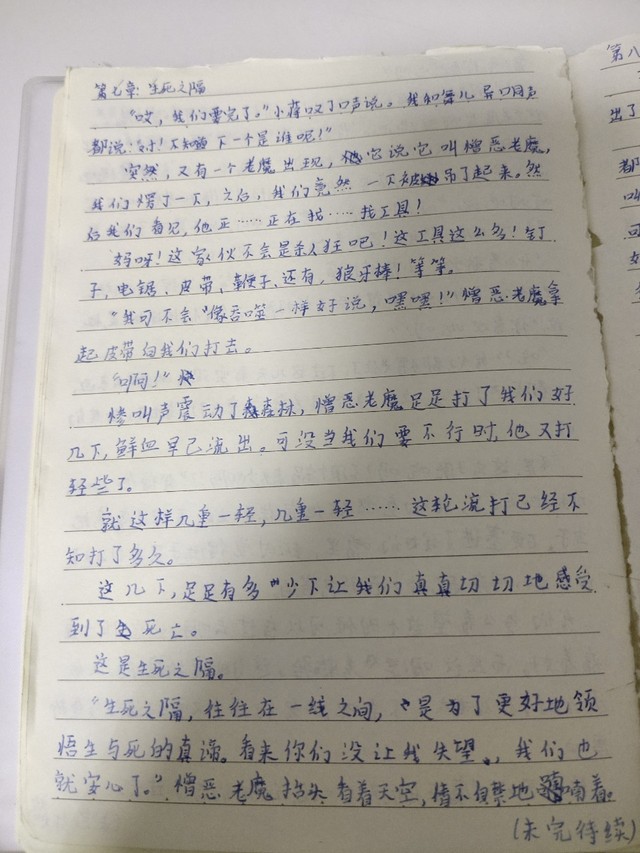 第七章:生死之隔
"哎,我们要完了。"小蒋叹了口声说。我和舞儿异口同声
都说:"对!不知道下一个是谁呢!"
突然,又有一个老魔出现,它说它叫憎恶老魔,
我们愣了一下,之后,我们竟然一下被吊了起来。然
后我们看见,他正……正在找……找工具!
妈呀!这家伙不会是杀人狂吧!这工具这么多!钉
子、电锯、皮带、鞭子、还有,狼牙棒!等等。
"我可不会像吞噬一样好说,嘿嘿!"憎恶老魔拿
起皮带向我们打去。
"啊!"
惨叫声震动了森林,憎恶老魔足足打了我们好
几下,鲜血早已流出。可没当我们要不行时,他又打
轻些了。
就这样几重一轻,几重一轻……这轮流打已经不
知打了多久。
这几下,足足有多少下让我们真真切切地感受
到了死亡。
这是生死之隔。
"生死之隔,往往在一线之间,是为了更好地领
悟生与死的真谛。看来你们没让我失望,我们也
就安心了。"憎恶老魔抬头看着天空,情不自禁地喃着。
(未完待续)
第八
出了
都
叫
可
好